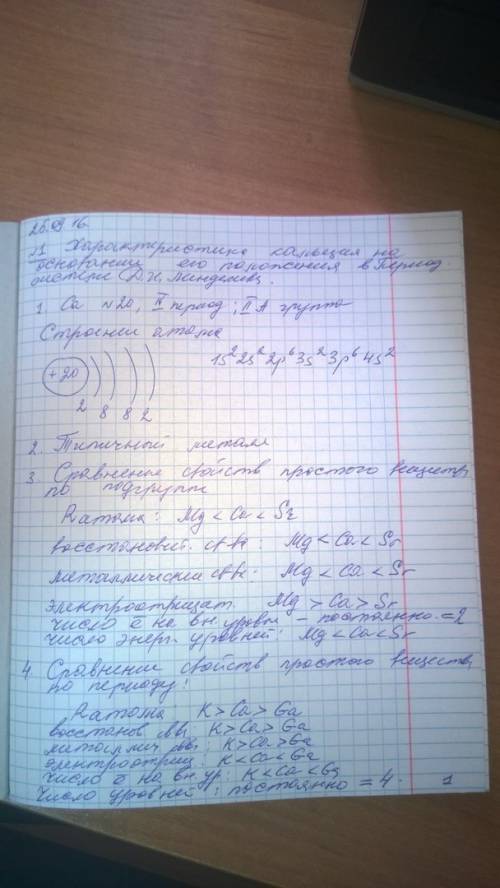 26.09 16.
№1. Характеристика кальция на
основании его положения в Период.
системе Д.И. Менделеева.
1. Ca №20, IV период; II A группа
Строение атома
+20 2 8 8 2 1s²2s²2p⁶3s²3p⁶4s²
2. Типичный металл
3. Сравнение свойств простого веществ
по подгруппе
R атома: Mg < Ca < Sr
восстановит. св-ва: Mg < Ca < Sr
металлические св-ва: Mg < Ca < Sr
электроотрицат. Mg > Ca > Sr
число ē на вн. уровне - постоянно = 2
число энерг. уровней: Mg < Ca < Sr
4. Сравнение свойств простого веществ
по периоду:
R атома: K > Ca > Ga
восстанов. св-ва: K > Ca > Ga
металлич. св-ва: K > Ca > Ga
электроотриц: K < Ca < Ga
число ē на вн. ур: K < Ca < Ga
Число уровней: постоянно = 4.
1